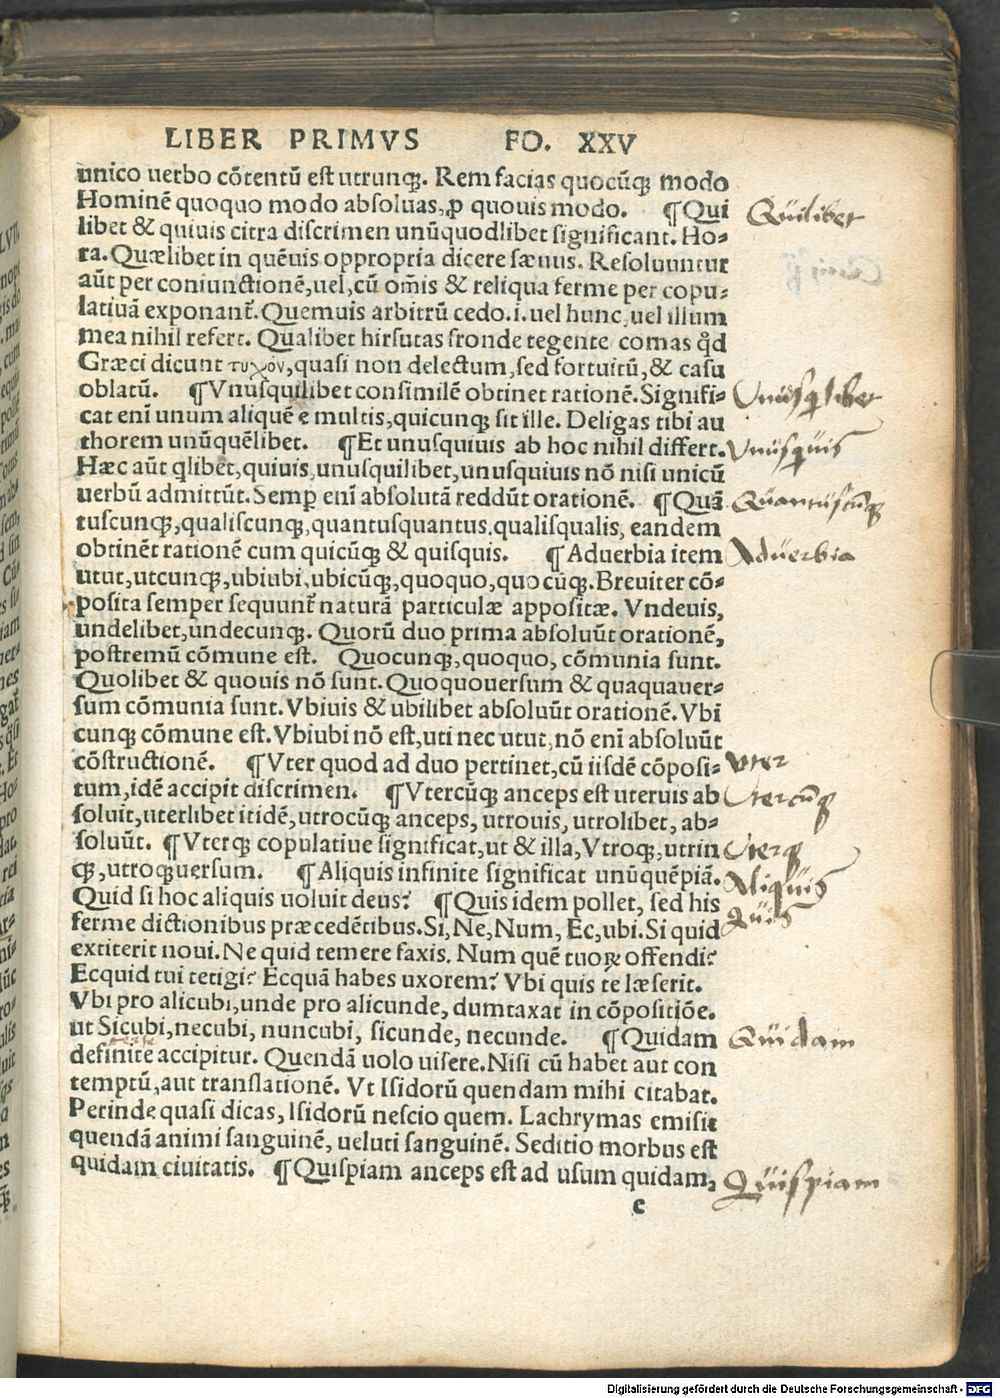 LIBER PRIMVS FO. XXV
unico uerbo cõtentũ est utrunqꝫ. Rem facias quocũqꝫ modo
Hominẽ quoquo modo absoluas, ꝓ quouis modo. ¶Qui Quilibet
libet & quiuis citra discrimen unũquodlibet significant. Ho⸗
ra. Quælibet in quẽuis oppropria dicere sæuus. Resoluuntur
aũt per coniunctionẽ, uel, cũ om̃is & reliqua ferme per copu⸗
latiuã exponant᷑. Quemuis arbitrũ cedo. i. uel hunc, uel illum
mea nihil refert. Qualibet hirsutas fronde tegente comas q̃d
Græci dicunt τυχὸν, quasi non delectum, sed fortuitũ, & casu
oblatũ. ¶Vnusquilibet consimilẽ obtinet rationẽ. Signifi⸗ Vnusqlibet
cat enĩ unum aliquẽ e multis, quicunqꝫ sit ille. Deligas tibi au
thorem unũquẽlibet. ¶Et unusquiuis ab hoc nihil differt. Vnusquis
Hæc aũt q̃libet, quiuis, unusquilibet, unusquiuis nõ nisi unicũ
uerbũ admittũt. Semꝑ enĩ absolutã reddũt orationẽ. ¶Quã Quantuscũqꝫ
tuscunqꝫ, qualiscunqꝫ, quantusquantus, qualisqualis, eandem
obtinẽt rationẽ cum quicũqꝫ & quisquis. ¶Aduerbia item Aduerbia
utut, utcunqꝫ, ubiubi, ubicũqꝫ, quoquo, quocũqꝫ. Breuiter cõ⸗
posita semper sequunt᷑ naturã particulæ appositæ. Vndeuis,
undelibet, undecunqꝫ. Quorũ duo prima absoluũt orationẽ,
postremũ cõmune est. Quocunqꝫ, quoquo, cõmunia sunt.
Quolibet & quouis nõ sunt. Quoquouersum & quaquauer⸗
sum cõmunia sunt. Vbiuis & ubilibet absoluũt orationẽ. Vbi
cunqꝫ cõmune est. Vbiubi nõ est, uti nec utut, nõ enĩ absoluũt
cõstructionẽ. ¶Vter quod ad duo pertinet, cũ iisdẽ cõposi⸗ Vter
tum, idẽ accipit discrimen. ¶Vtercũqꝫ anceps est uteruis ab Vtercũqꝫ
soluit, uterlibet itidẽ, utrocũqꝫ anceps, utrouis, utrolibet, ab⸗
soluũt. ¶Vterqꝫ copulatiue significat, ut & illa, Vtroqꝫ, utrin Vterqꝫ
qꝫ, utroqꝫuersum. ¶Aliquis infinite significat unũquẽpiã. Aliquis
Quid si hoc aliquis uoluit deus? ¶Quis idem pollet, sed his Quis
ferme dictionibus præcedẽtibus. Si, Ne, Num, Ec, ubi. Si quid
extiterit noui. Ne quid temere faxis. Num quẽ tuoꝝ offendi?
Ecquid tui tetigi? Ecquã habes uxorem? Vbi quis te læserit.
Vbi pro alicubi, unde pro alicunde, dumtaxat in cõpositiõe.
ut Sicubi, necubi, nuncubi, sicunde, necunde. ¶Quidam Quidam
definite accipitur. Quendã uolo uisere. Nisi cũ habet aut con
temptũ, aut translationẽ. Vt Isidorũ quendam mihi citabat.
Perinde quasi dicas, Isidorũ nescio quem. Lachrymas emisit
quendã animi sanguinẽ, ueluti sanguinẽ. Seditio morbus est
quidam ciuitatis. ¶Quispiam anceps est ad usum quidam, Quispiam
c
Digitalisierung gefördert durch die Deutsche Forschungsgemeinschaft - DFG